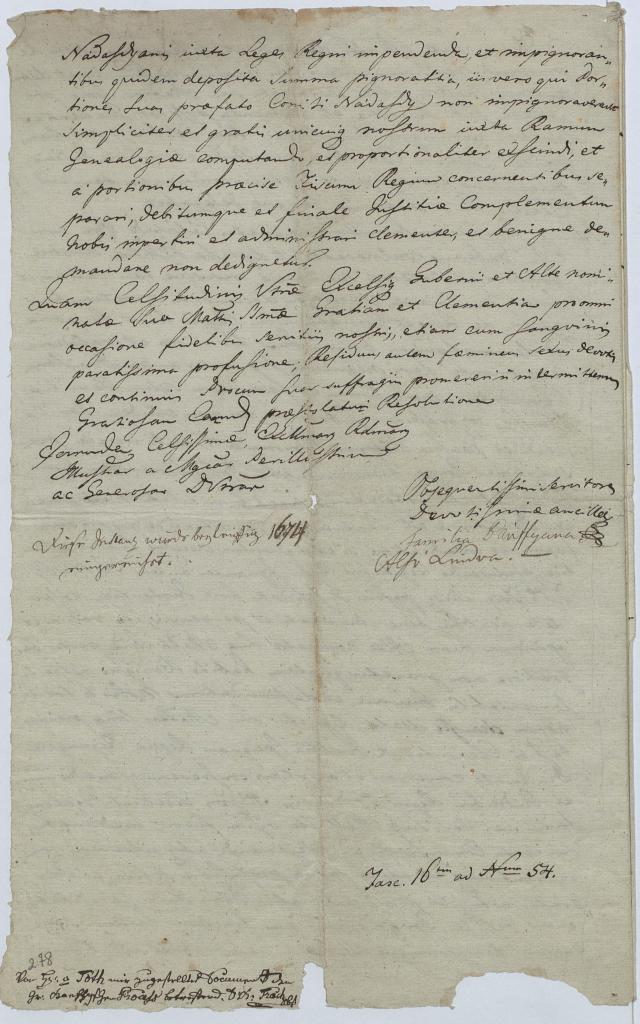 Nadasdyanis iuxta Leges Regni impendenda, et impignoran-
tibus quidem deposita Summa pignoratitia, iis vero qui Por-
tiones suas praefato Comiti Nadasdy non impignoraverant
Simpliciter et gratis unicuiq nostrum iuxta Ramum
Genealogiae computando, et proportionaliter exscindi, et
a portionibus praecise Fiscum Regium concernentibus se-
parari, debitumque et finale Justitiae Complementum
Nobis impertiri et administrari clementer, et benigne de-
mandare non dedignetur.
Quam Celsitudinis Vrae Excelsiq Gubernii et Alte nomi-
natae Suae Mattis Ssmae Gratiam et Clementiam pro omni
occasione fidelibus servitiis nostris, etiam cum Sanguinis
paratissima profusione, Residui autem faeminei Sexus devotis
et continuis Precum suar suffragiis promereri non intermittemus
Gratiosam Eamd praestolaturi Resolutionem
Earumdem Celsissimae,
Illustrar a Mgcar Perillustrium
ac Generosar DVrar
Obsequentissimi Servitores
Devotissimae ancillae
Familia Bánffyana
Alsó Lindva.
Diese Instanz wurde 1674
eingereicht.
Fasc. 16tus ad Num 54.
278
Von Hr: v Toth mir zugestelltes Document den
Gr. Process betreffend.